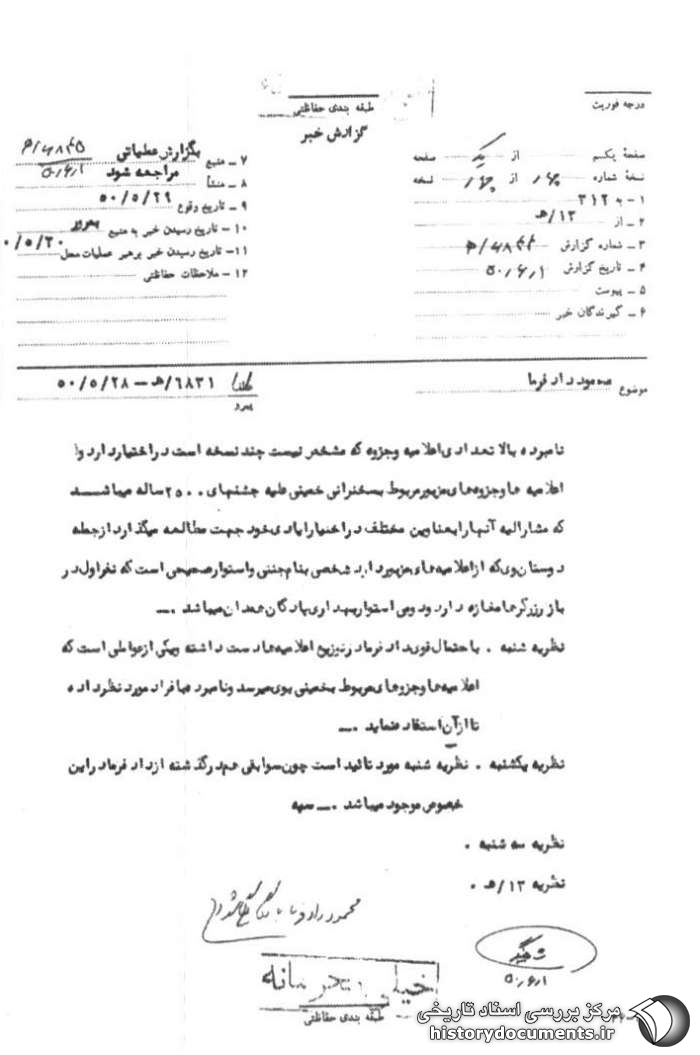 درجه فوریت
طبقه بندی حفاظتی
گزارش خبر
صفحهٔ یکم از یک صفحه
نسخهٔ شماره چهار از چهار نسخه
۱ ـ به ۳۱۲
۲ ـ از ۱۳/هـ
۳ ـ شماره گزارش
۴ ـ تاریخ گزارش ۵۰٫۶٫۱
۵ ـ پیوست
۶ ـ گیرندگان خبر
۷ ـ منبع بگزارش عملیاتی
۸ ـ منشأ مراجعه شود
۵۰٫۶٫۱
۹ ـ تاریخ وقوع ۵۰/۵/۲۹
۱۰ ـ تاریخ رسیدن خبر به منبع
۱۱ ـ تاریخ رسیدن خبر برهبر عملیات محل ۰/۵/۳۰
۱۲ ـ ملاحظات حفاظتی
موضوع محمود دادفرما
۶۸۳۱/هـ ــ ۵۰/۵/۲۸
نامبرده بالا تعدادی اعلامیه وجزوه که مشخص نیست چند نسخه است در اختیار دارد و
اعلامیه ها وجزوه های مزبور مربوط بسخنرانی خمینی علیه جشنهای ۲۵۰۰ ساله میباشد
که مشارالیه آنها را بعناوین مختلف در اختیار ایادی خود جهت مطالعه میگذارد از جمله
دوستان وی که از اعلامیه های مزبور دارد شخصی بنام جنتی و استوار صحیحی است که نفر اول در
بازار زرگرها مغازه دارد و دومی استوار بهداری پادگان همدان میباشد .ــ
نظریه شنبه . باحتمال قوی دادفرما در توزیع اعلامیه ها دست داشته ویکی از عواملی است که
اعلامیه ها وجزوه های مربوط بخمینی بوی میرسد ونامبرده بافراد مورد نظر داده
تا از آن استفاده نماید .ــ
نظریه یکشنبه . نظریه شنبه مورد تائید است چون سوابقی هم در گذشته از دادفرما در این
خصوص موجود میباشد .ــ سپه
نظریه سه شنبه .
نظریه ۱۳/هـ .
محمود دادفرما
۵۰٫۶٫۱
خیلی محرمانه
طبقه بندی حفاظتی
مرکز بررسی اسناد تاریخی
historydocuments.ir